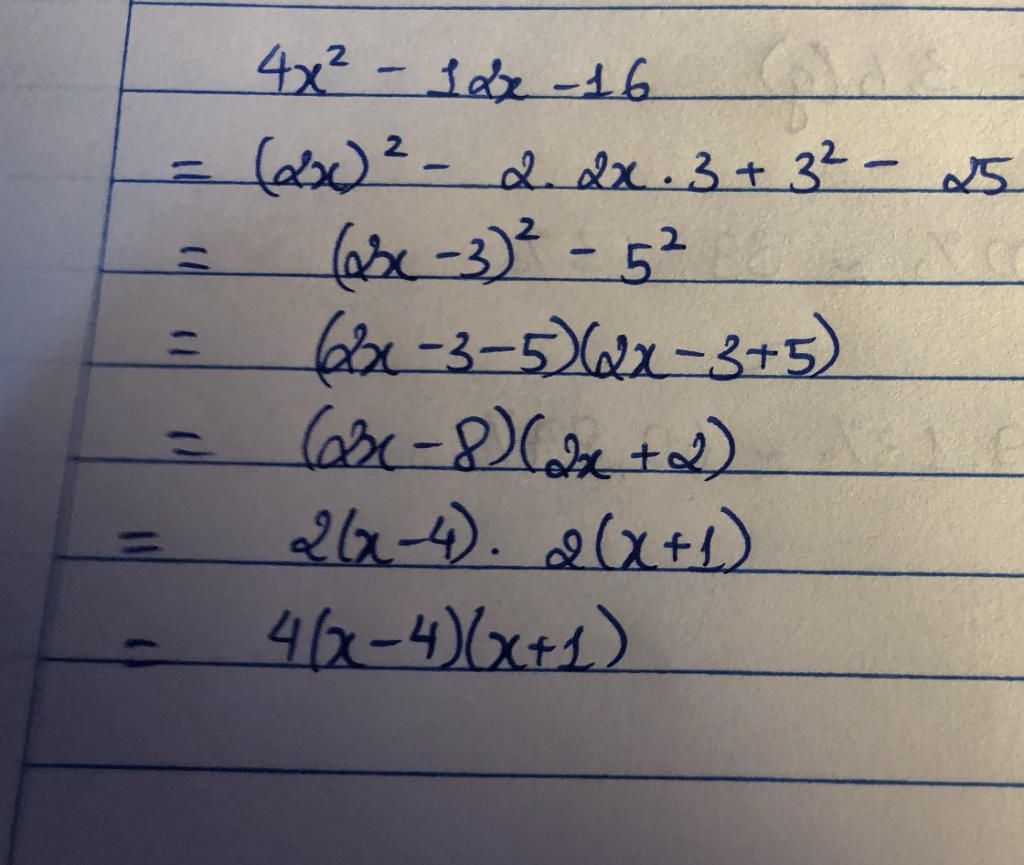 4x² - 12x - 16
= (2x)² - 2. 2x . 3 + 3² - 25
= (2x - 3)² - 5²
= (2x - 3 - 5)(2x - 3 + 5)
= (2x - 8)(2x + 2)
= 2(x - 4). 2(x + 1)
= 4(x - 4)(x + 1)